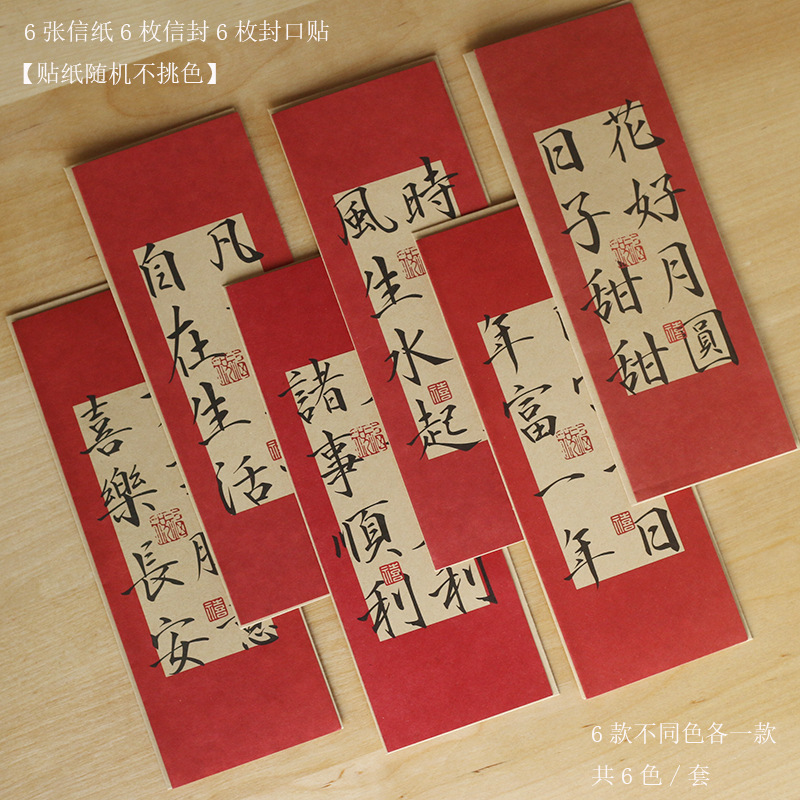 6张信纸6枚信封6枚封口贴
【贴纸随机不挑色】
花好月圓
日子甜甜
時
風生水起
凡
自在生活
年富一年
日
諸事順利
利
喜樂長安
月
6款不同色各一款
共6色/套